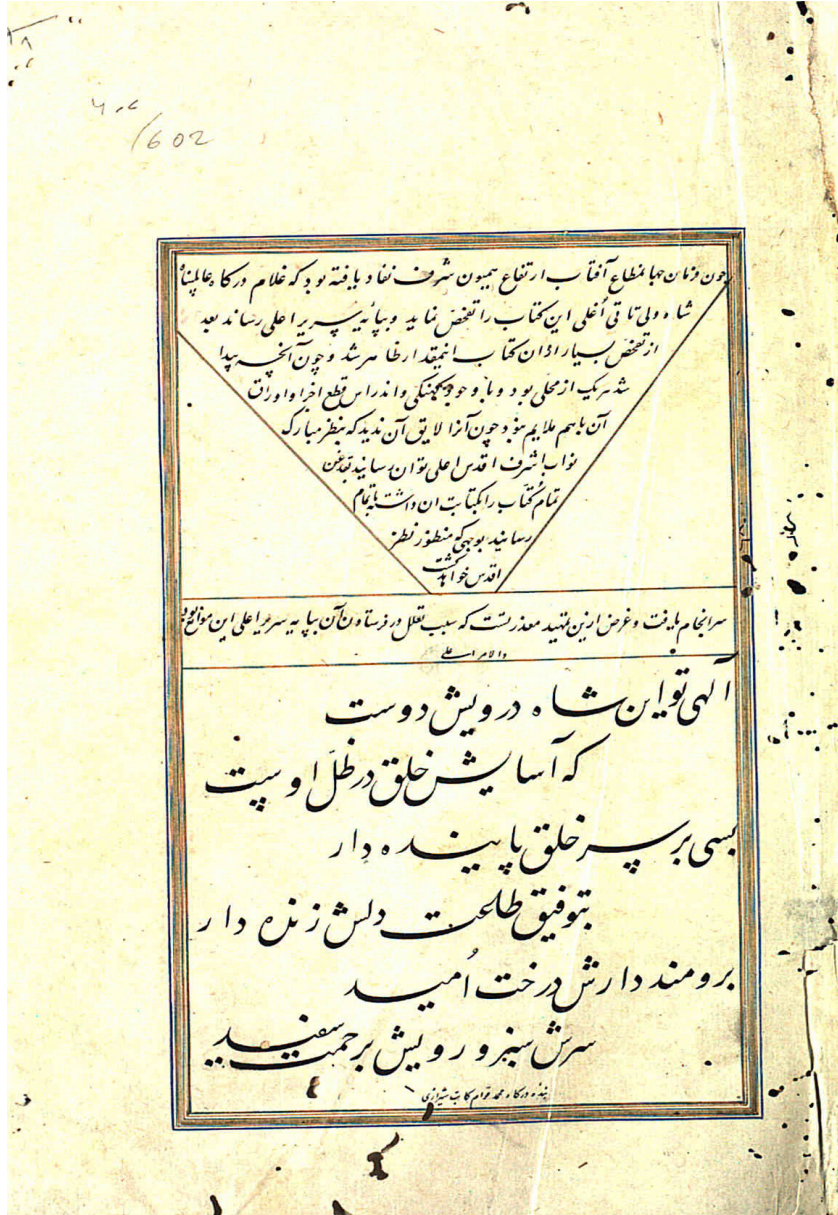 ۶۰۲
/602
چون فرمان جهانمطاع آفتاب ارتفاع همیون شرف نفاد یافته بود که غلام درکاه عالمپناه
شاه ولی تاتی اُغلی این کتاب را تفحص نماید و بپایه سریر اعلی رساند بعد
از تفحص بسیار ازان کتاب اینمقدار ظاهر شد و چون آنچه پیدا
شد هریک از محلی بود و با وجود کهنکی و اندراس قطع اجزا و اوراق
آن باهم ملایم نبود چون آنرا لایق آن ندید که بنظر مبارک
نواب اشرف اقدس اعلی توان رسانید
تمام کتاب را بکتابت ان داشته باتمام
رسانید بوجهی که منظور نظر
اقدس خواهد کشت
سرانجام یافت و غرض ازین تمهید معذرتست که سبب تعلل در فرستادن آن بپایه سریر اعلی این موانع بود
والامر اعلی
آلهی تو این شاه درویش دوست
که آسایش خلق در ظلّ اوست
بسی بر سر خلق پاینده دار
بتوفیق طاعت دلش زنده دار
برومند دارش درخت اُمید
سرش سبز و رویش برحمت سفید
بنده درکاه محمد قوام کاتب شیرازی